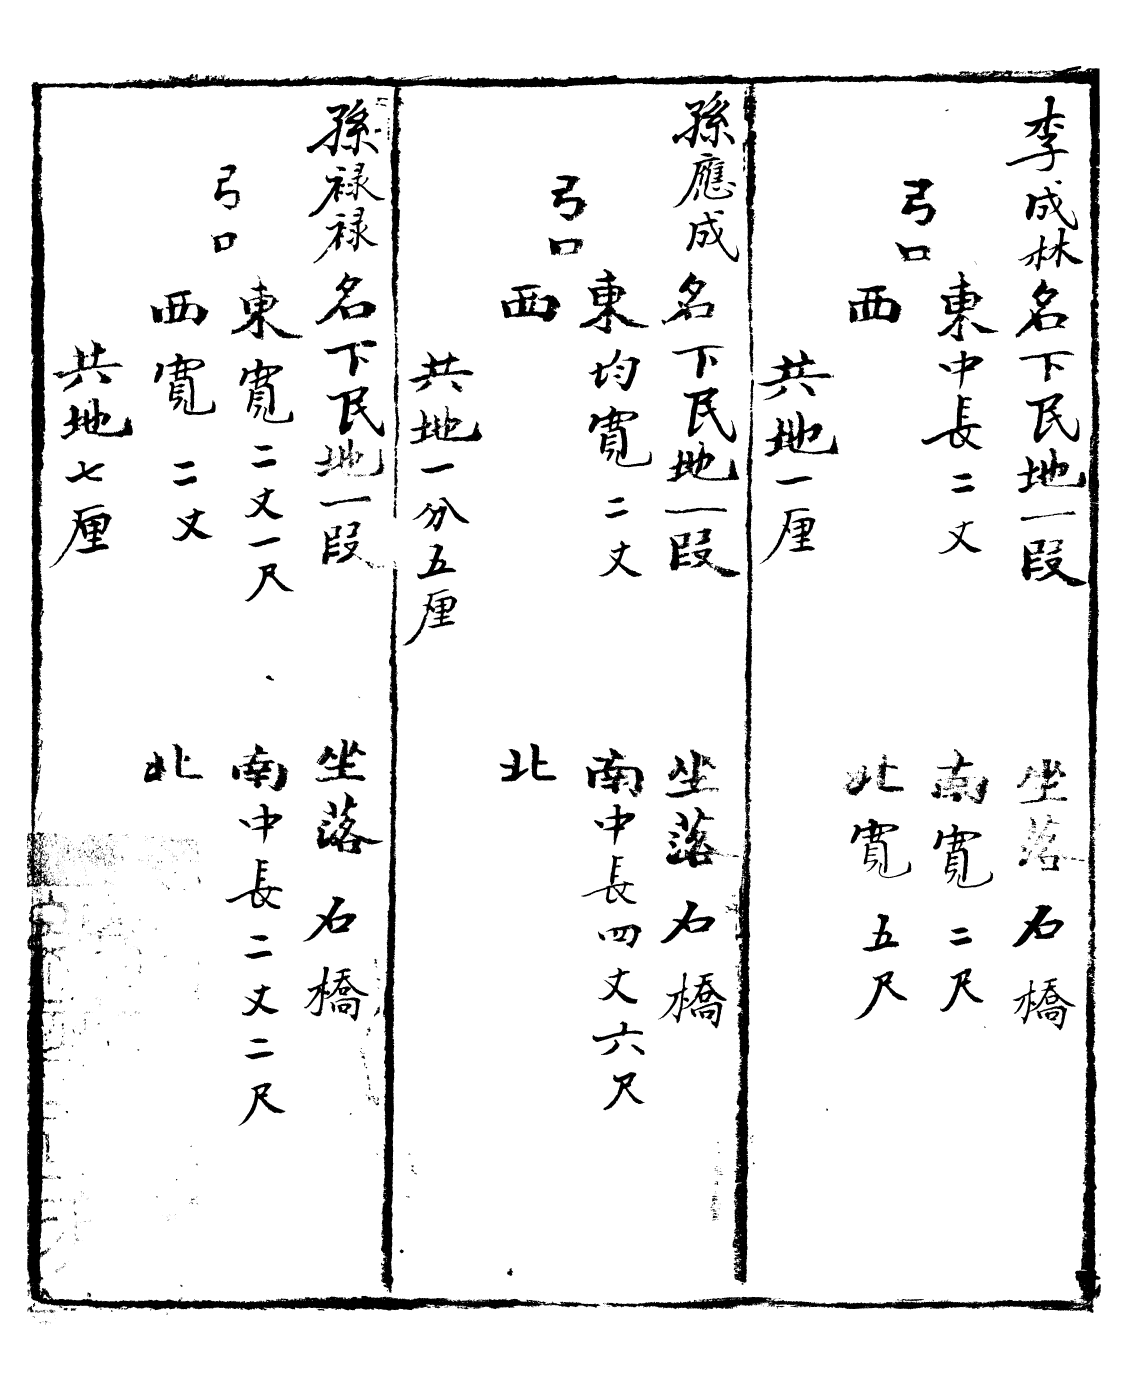 李成林名下民地一段 坐落 石橋
弓口
東中長二丈 南寬二尺
西 北寬五尺
共地一厘
孫應成名下民地一段 坐落 石橋
弓口
東均寬二丈 南中長四丈六尺
西 北
共地一分五厘
孫禄禄名下民地一段 坐落 石橋
弓口
東寬二丈一尺 南中長二丈二尺
西寬二丈 北
共地七厘